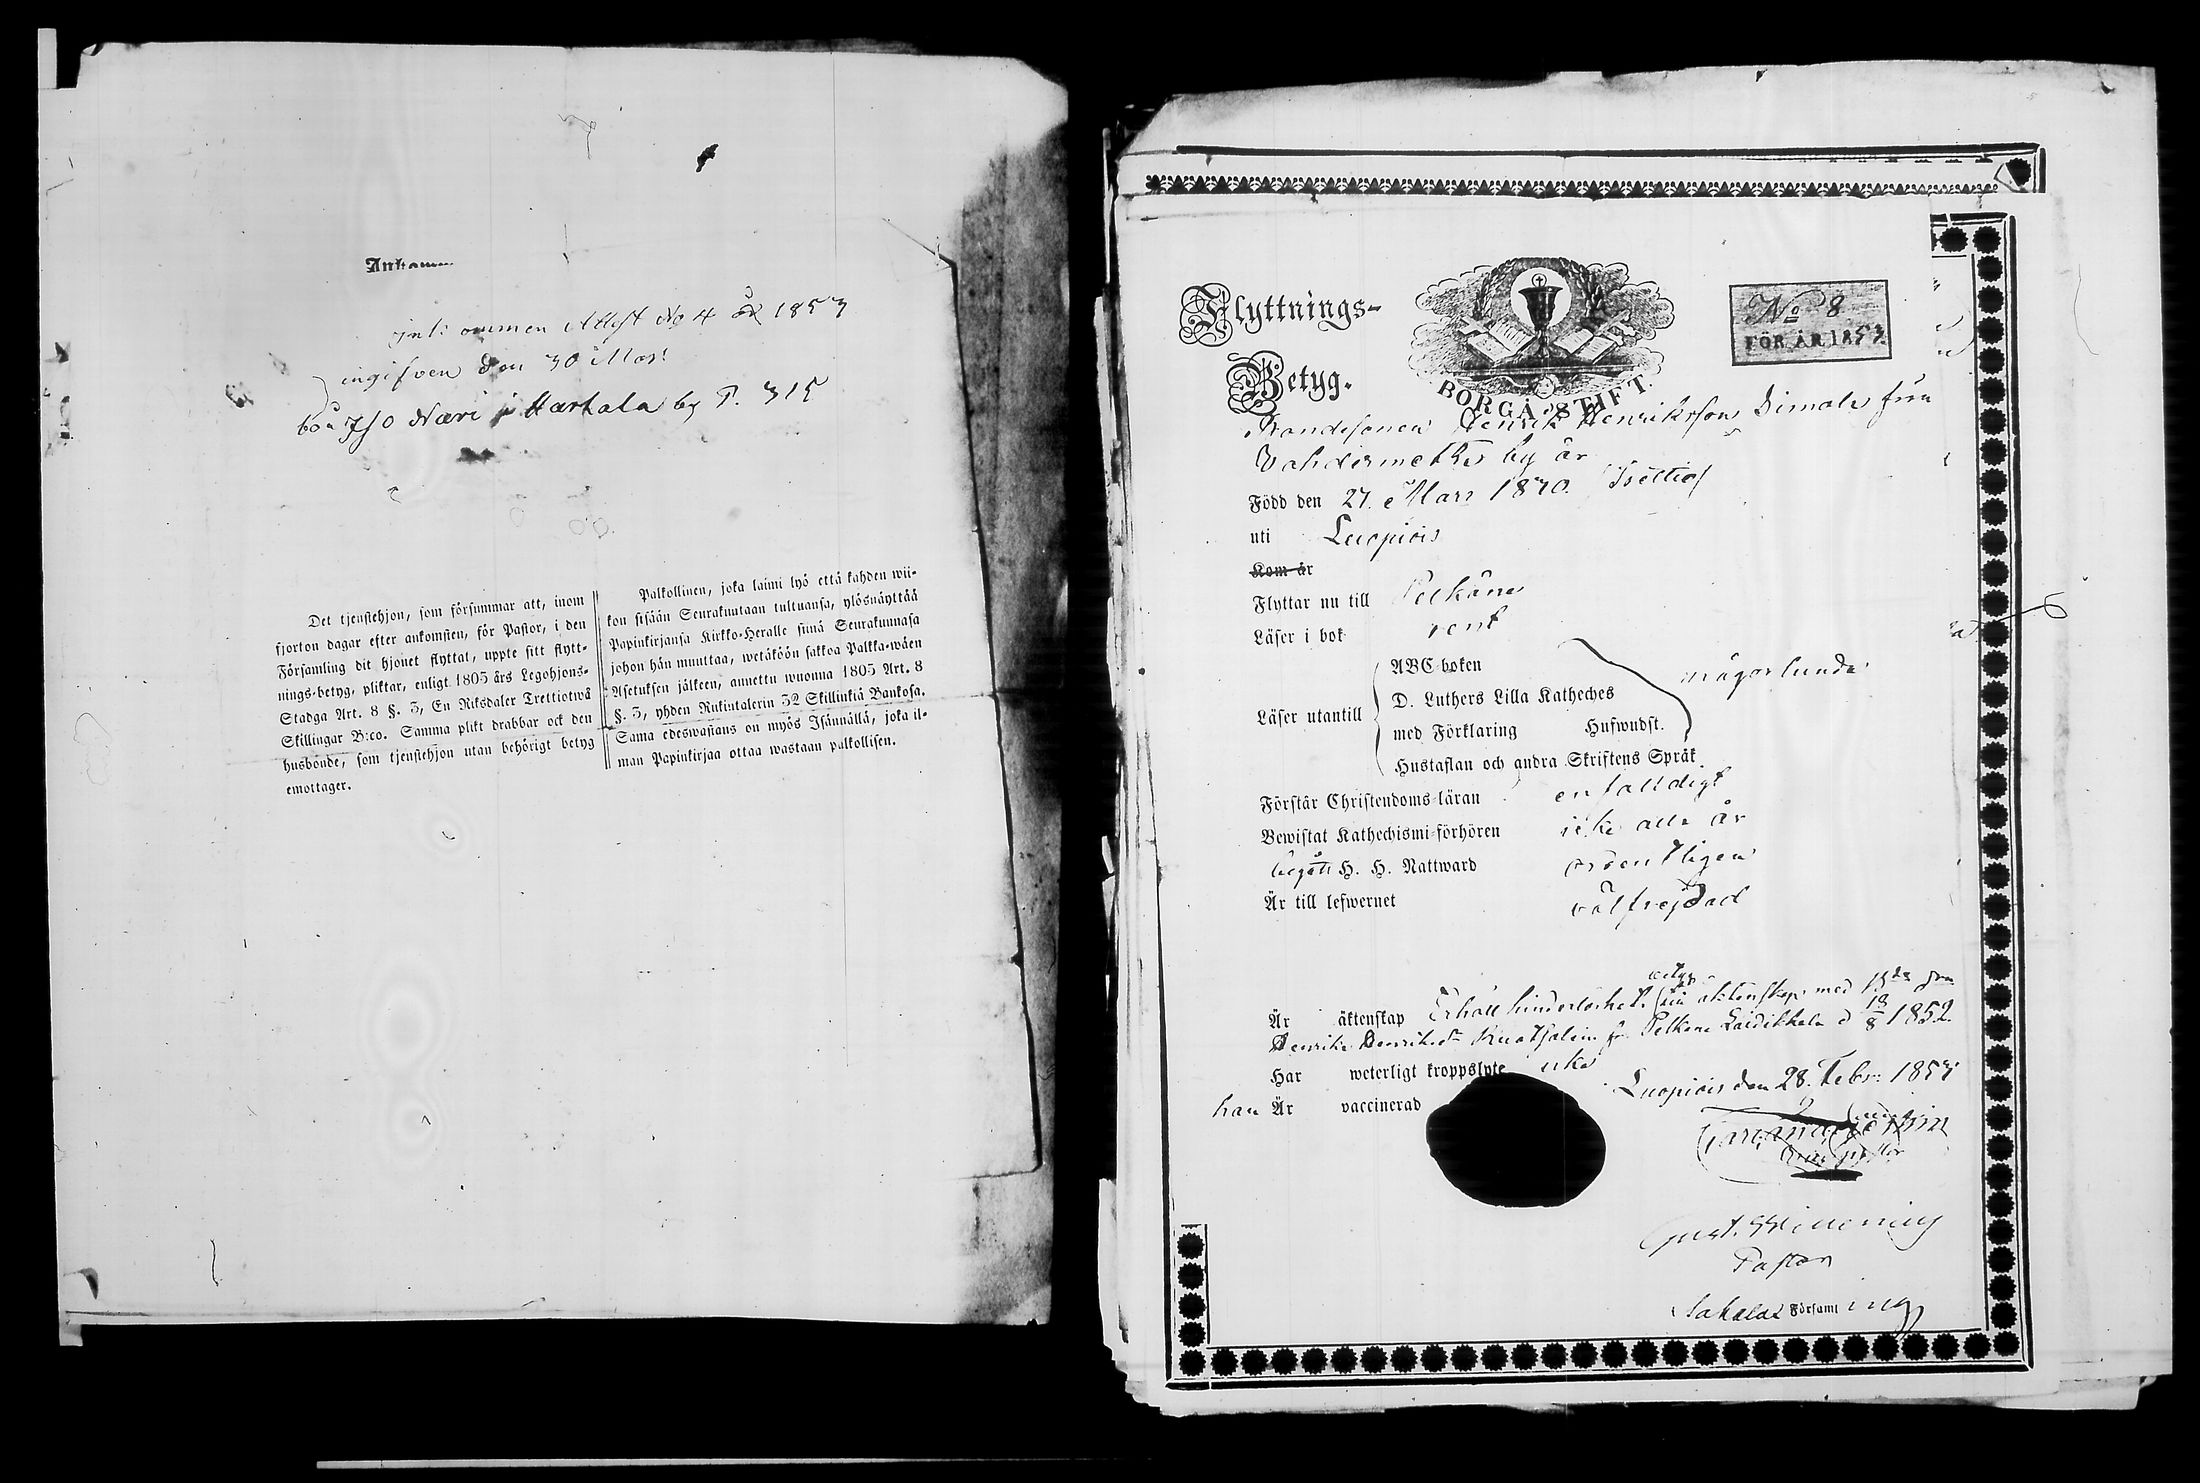 Ankomm
inkommen Attest No 4 år 1853
ingifven den 30 Mars
bör Iso Näri i Harhala by P. 315
Det tjenstehjon, som försummar att, inom
fjorton dagar efter ankomsten, för Pastor, i den
Församling dit hjonet flyttat, uppte sitt flytt-
nings-betyg, pliktar, enligt 1805 års Legohjons-
Stadga Art. 8 §. 3, En Riksdaler Trettiotwå
Skillingar B:co. Samma plikt drabbar ock den
husbonde, som tjenstehjon utan behörigt betyg
emottager.
Palkollinen, joka laimi lyö että kahden wii-
kon sisään Seurakuntaan tultuansa, ylösnäyttää
Papinkirjansa Kirkko-Heralle siinä Seurakunnasa
johon hän muuttaa, wetäköön sakkoa Palkka-wäen
Asetuksen jälkeen, annettu wuonna 1805 Art. 8
§. 3, yhden Rukintalerin 32 Skillinkiä Bankosa.
Sama edeswastaus on myös Isännällä, joka il-
man Papinkirjaa ottaa wastaan palkollisen.
Flyttnings-
Betyg.
BORGÅ STIFT
No 8
FÖR ÅR 1853
Bondesonen Henrik Henriksson Simola från
by är
Född den 27 Mars 1830
uti Luopiois
Kom år
Flyttar nu till Pelkäne
Läser i bok rent
Läser utantill
ABC-boken
D. Luthers Lilla Katheches
med Förklaring Hufwudst.
Hustaflan och andra Skriftens Språk
någorlunda
Förstår Christendoms-läran enfaldigt
Bewistat Kathechismi-förhören icke alla år
begått H. H. Nattward ordentligen
Är till lefwernet välfrejdad
Är äktenskap Erhöll hinderlöshets betyg till äktenskap med
Henrika Henriksdr fr. Pelkäne Laidikkala d 18/8 1852
Har weterligt kroppslyte icke
han Är vaccinerad
Luopiois den 28. Febr: 1853
Gust. Winning
Pastor
Sahalax Församling